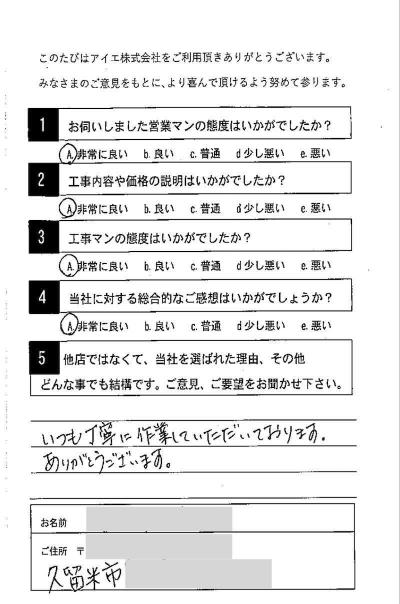 このたびはアイエ株式会社をご利用頂きありがとうございます。
みなさまのご意見をもとに、より喜んで頂けるよう努めて参ります。
1 お伺いしました営業マンの態度はいかがでしたか？
A.非常に良い b.良い c.普通 d少し悪い e.悪い
2 工事内容や価格の説明はいかがでしたか？
A.非常に良い b.良い c.普通 d少し悪い e.悪い
3 工事マンの態度はいかがでしたか？
A.非常に良い b.良い c.普通 d少し悪い e.悪い
4 当社に対する総合的なご感想はいかがでしょうか？
A.非常に良い b.良い c.普通 d少し悪い e.悪い
5 他店ではなくて、当社を選ばれた理由、その他
どんな事でも結構です。ご意見、ご要望をお聞かせ下さい。
いつも丁寧に作業していただいております。
ありがとうございます。
お名前
ご住所 〒
久留米市